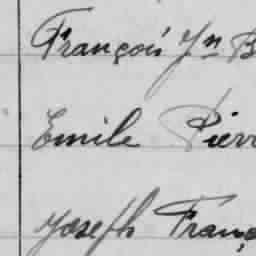 François Jn B
Emile Pierr
Joseph Franç